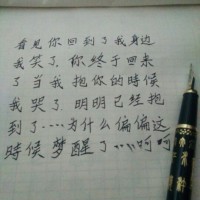 看见你回到了我身边
我笑了.你终于回来
了.当我抱你的時候
我哭了.明明已经抱
到了....为什么偏偏这
時候梦醒了....呵呵